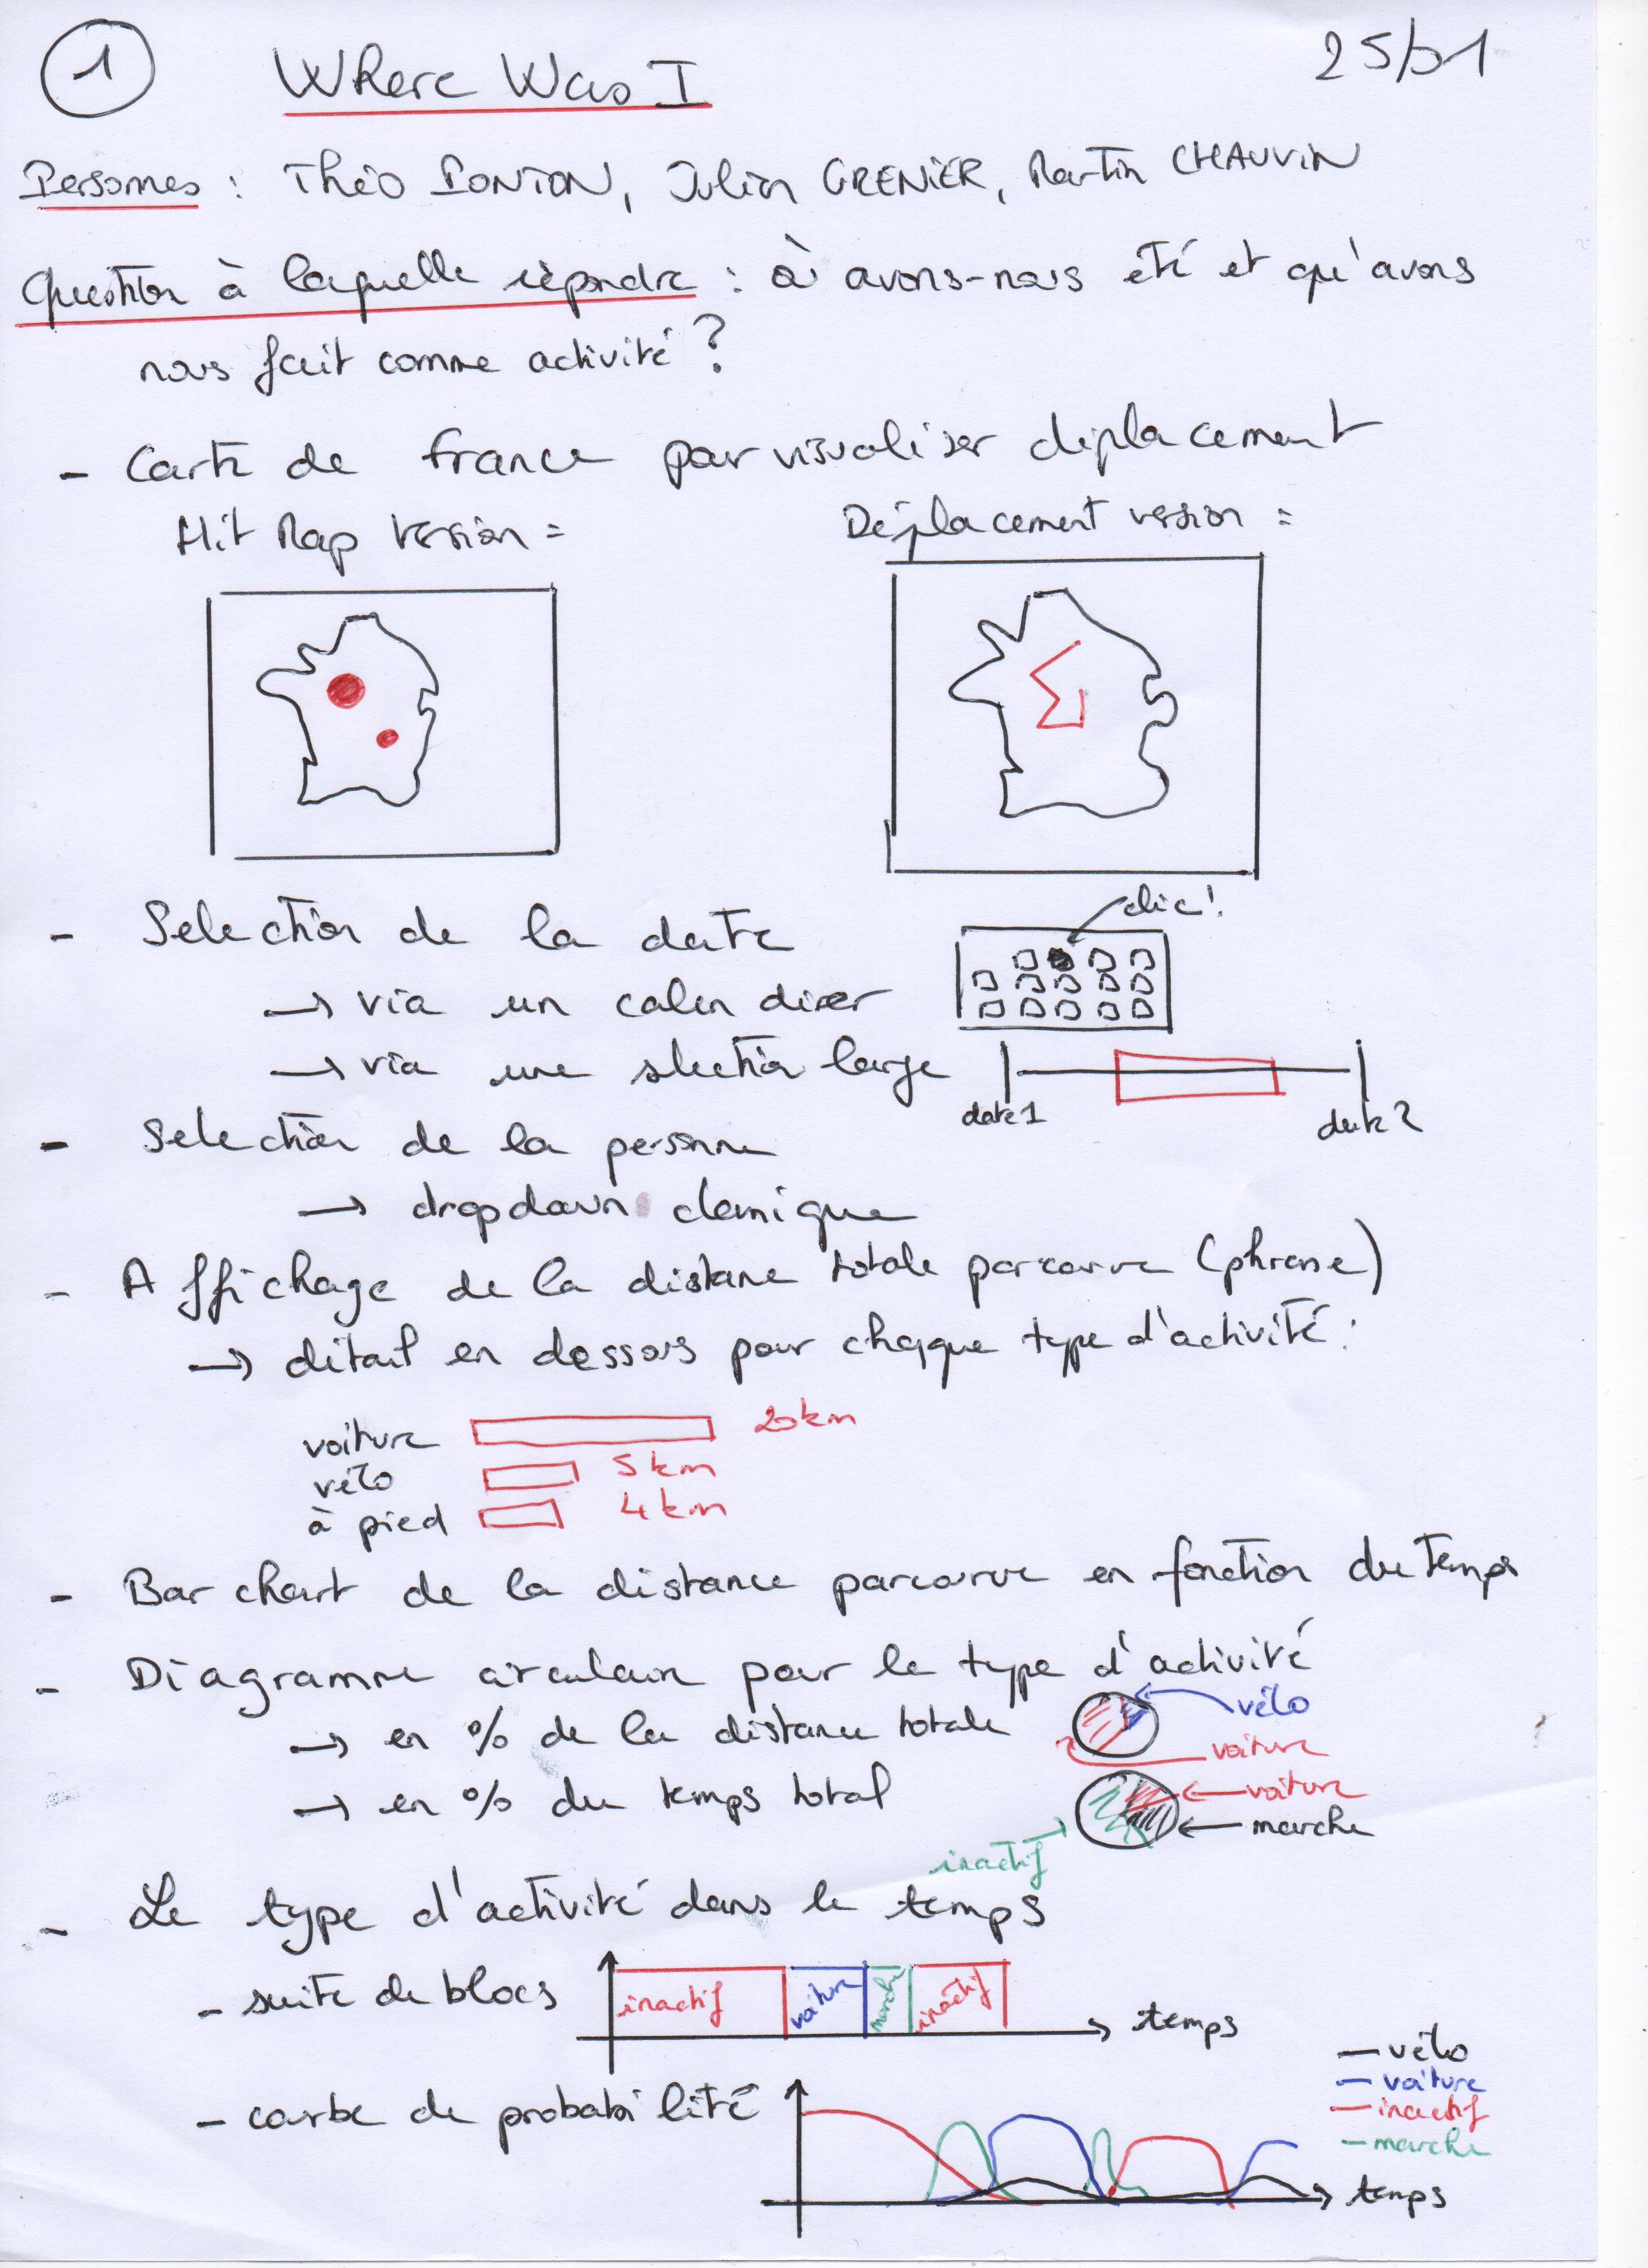 1 Where Was I 25/01
Personnes : Théo PONTON, Julien GRENIER, Martin CHAUVIN
Question à laquelle répondre : où avons-nous été et qu'avons
nous fait comme activité ?
- Carte de france pour visualiser déplacement
Hit Map version = Déplacement version =
clic !
- Selection de la date
→ via un calendrier
→ via une selection large
date 1 date 2
- Selection de la personne
→ dropdown classique
- Affichage de la distance totale parcourue (phrase)
→ détail en dessous pour chaque type d'activité :
voiture 20 km
vélo 5 km
à pied 4 km
- Bar chart de la distance parcourue en fonction du temps
- Diagramme circulaire pour le type d'activité
→ en % de la distance totale vélo
voiture
→ en % du temps total voiture
marche
inactif
- Le type d'activité dans le temps
- suite de blocs inactif voiture marche inactif temps
- courbe de probabilité
vélo
voiture
inactif
marche
temps